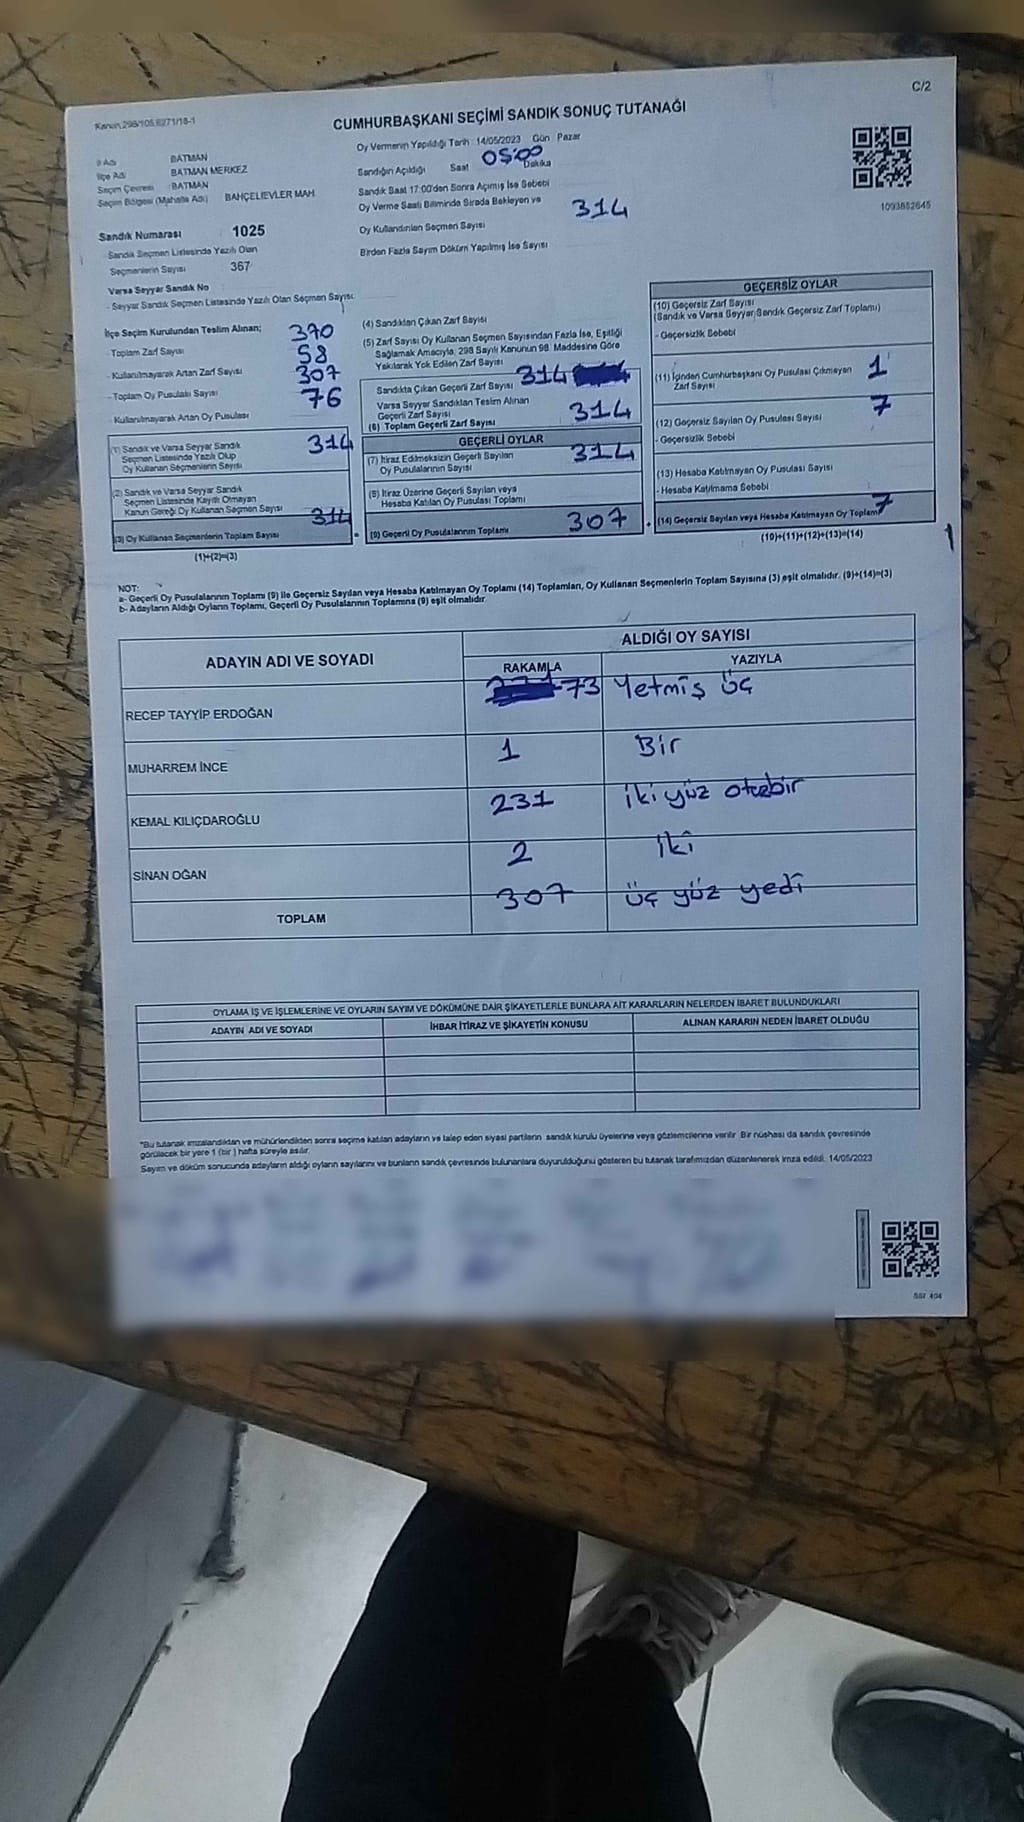 C/2
Kanun,298/105,6271/18-1
CUMHURBAŞKANI SEÇİMİ SANDIK SONUÇ TUTANAĞI
Oy Vermenin Yapıldığı Tarih : 14/05/2023 Gün Pazar
İl Adı BATMAN
İlçe Adı BATMAN MERKEZ
Seçim Çevresi : BATMAN
Seçim Bölgesi (Mahalle Adı) BAHÇELİEVLER MAH.
Sandığın Açıldığı Saat 05:00 Dakika
Sandık Saat 17:00'den Sonra Açılmış İse Sebebi
Oy Verme Saati Bitiminde Sırada Bekleyen ve
Oy Kullandırılan Seçmen Sayısı 314
Birden Fazla Sayım Döküm Yapılmış İse Sayısı
1093852645
Sandık Numarası 1025
Sandık Seçmen Listesinde Yazılı Olan
Seçmenlerin Sayısı 367
Varsa Seyyar Sandık No
- Seyyar Sandık Seçmen Listesinde Yazılı Olan Seçmen Sayısı:
İlçe Seçim Kurulundan Teslim Alınan;
- Toplam Zarf Sayısı 370
- Kullanılmayarak Artan Zarf Sayısı 58
- Toplam Oy Pusulası Sayısı 307
- Kullanılmayarak Artan Oy Pusulası 76
(1) Sandık ve Varsa Seyyar Sandık
Seçmen Listesinde Yazılı Olup
Oy Kullanan Seçmenlerin Sayısı 314
(2) Sandık ve Varsa Seyyar Sandık
Seçmen Listesinde Kayıtlı Olmayan
Kanun Gereği Oy Kullanan Seçmen Sayısı
(3) Oy Kullanan Seçmenlerin Toplam Sayısı 314
(1)+(2)=(3)
(4) Sandıktan Çıkan Zarf Sayısı
(5) Zarf Sayısı Oy Kullanan Seçmen Sayısından Fazla İse, Eşitliği
Sağlamak Amacıyla, 298 Sayılı Kanunun 98. Maddesine Göre
Yakılarak Yok Edilen Zarf Sayısı
Sandıkta Çıkan Geçerli Zarf Sayısı 314
Varsa Seyyar Sandıktan Teslim Alınan
Geçerli Zarf Sayısı
(6) Toplam Geçerli Zarf Sayısı 314
GEÇERLİ OYLAR
(7) İtiraz Edilmeksizin Geçerli Sayılan
Oy Pusulalarının Sayısı 314
(8) İtiraz Üzerine Geçerli Sayılan veya
Hesaba Katılan Oy Pusulası Toplamı
(9) Geçerli Oy Pusulalarının Toplamı 307
GEÇERSİZ OYLAR
(10) Geçersiz Zarf Sayısı
(Sandık ve Varsa Seyyar Sandık Geçersiz Zarf Toplamı)
- Geçersizlik Sebebi
(11) İçinden Cumhurbaşkanı Oy Pusulası Çıkmayan
Zarf Sayısı 1
(12) Geçersiz Sayılan Oy Pusulası Sayısı 7
- Geçersizlik Sebebi
(13) Hesaba Katılmayan Oy Pusulası Sayısı
- Hesaba Katılmama Sebebi
(14) Geçersiz Sayılan veya Hesaba Katılmayan Oy Toplamı 7
(10)+(11)+(12)+(13)=(14)
1
NOT:
a- Geçerli Oy Pusulalarının Toplamı (9) ile Geçersiz Sayılan veya Hesaba Katılmayan Oy Toplamı (14) Toplamları, Oy Kullanan Seçmenlerin Toplam Sayısına (3) eşit olmalıdır. (9)+(14)=(3)
b- Adayların Aldığı Oyların Toplamı, Geçerli Oy Pusulalarının Toplamına (9) eşit olmalıdır.
ADAYIN ADI VE SOYADI ALDIĞI OY SAYISI
RAKAMLA YAZIYLA
RECEP TAYYİP ERDOĞAN 73 Yetmiş üç
MUHARREM İNCE 1 Bir
KEMAL KILIÇDAROĞLU 231 iki yüz otuzbir
SİNAN OĞAN 2 iki
TOPLAM 307 üç yüz yedi
OYLAMA İŞ VE İŞLEMLERİNE VE OYLARIN SAYIM VE DÖKÜMÜNE DAİR ŞİKAYETLERLE BUNLARA AİT KARARLARIN NELERDEN İBARET BULUNDUKLARI
ADAYIN ADI VE SOYADI İHBAR İTİRAZ VE ŞİKAYETİN KONUSU ALINAN KARARIN NEDEN İBARET OLDUĞU
*Bu tutanak imzalandıktan ve mühürlendikten sonra seçime katılan adayların ve talep eden siyasi partilerin sandık kurulu üyelerine veya gözlemcilerine verilir. Bir nüshası da sandık çevresinde
görülecek bir yere 1 (bir ) hafta süreyle asılır.
Sayım ve döküm sonucunda adayların aldığı oyların sayılarını ve bunların sandık çevresinde bulunanlara duyurulduğunu gösteren bu tutanak tarafımızdan düzenlenerek imza edildi. 14/05/2023